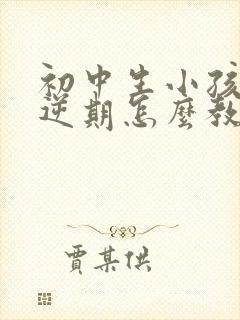 初中生小孩
逆期怎麼教
賈某供